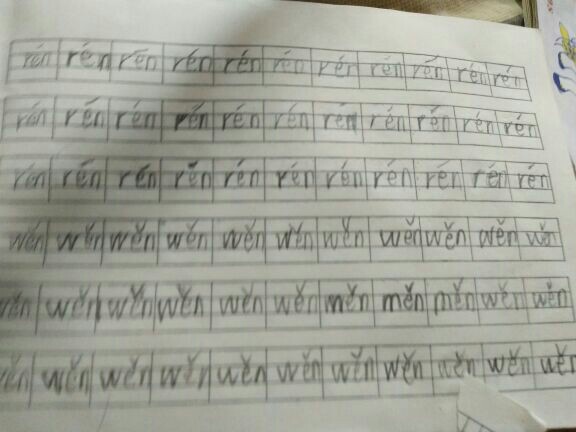 rén rén rén rén rén rén rén rén rén rén rén
rén rén rén rén rén rén rén rén rén rén rén
rén rén rén rén rén rén rén rén rén rén rén
wěn wěn wěn wěn wěn wěn wěn wěn wěn wěn wěn
wěn wěn wěn wěn wěn wěn měn měn měn wěn wěn
wěn wěn wěn wěn wěn wěn wěn wěn wěn wěn wěn